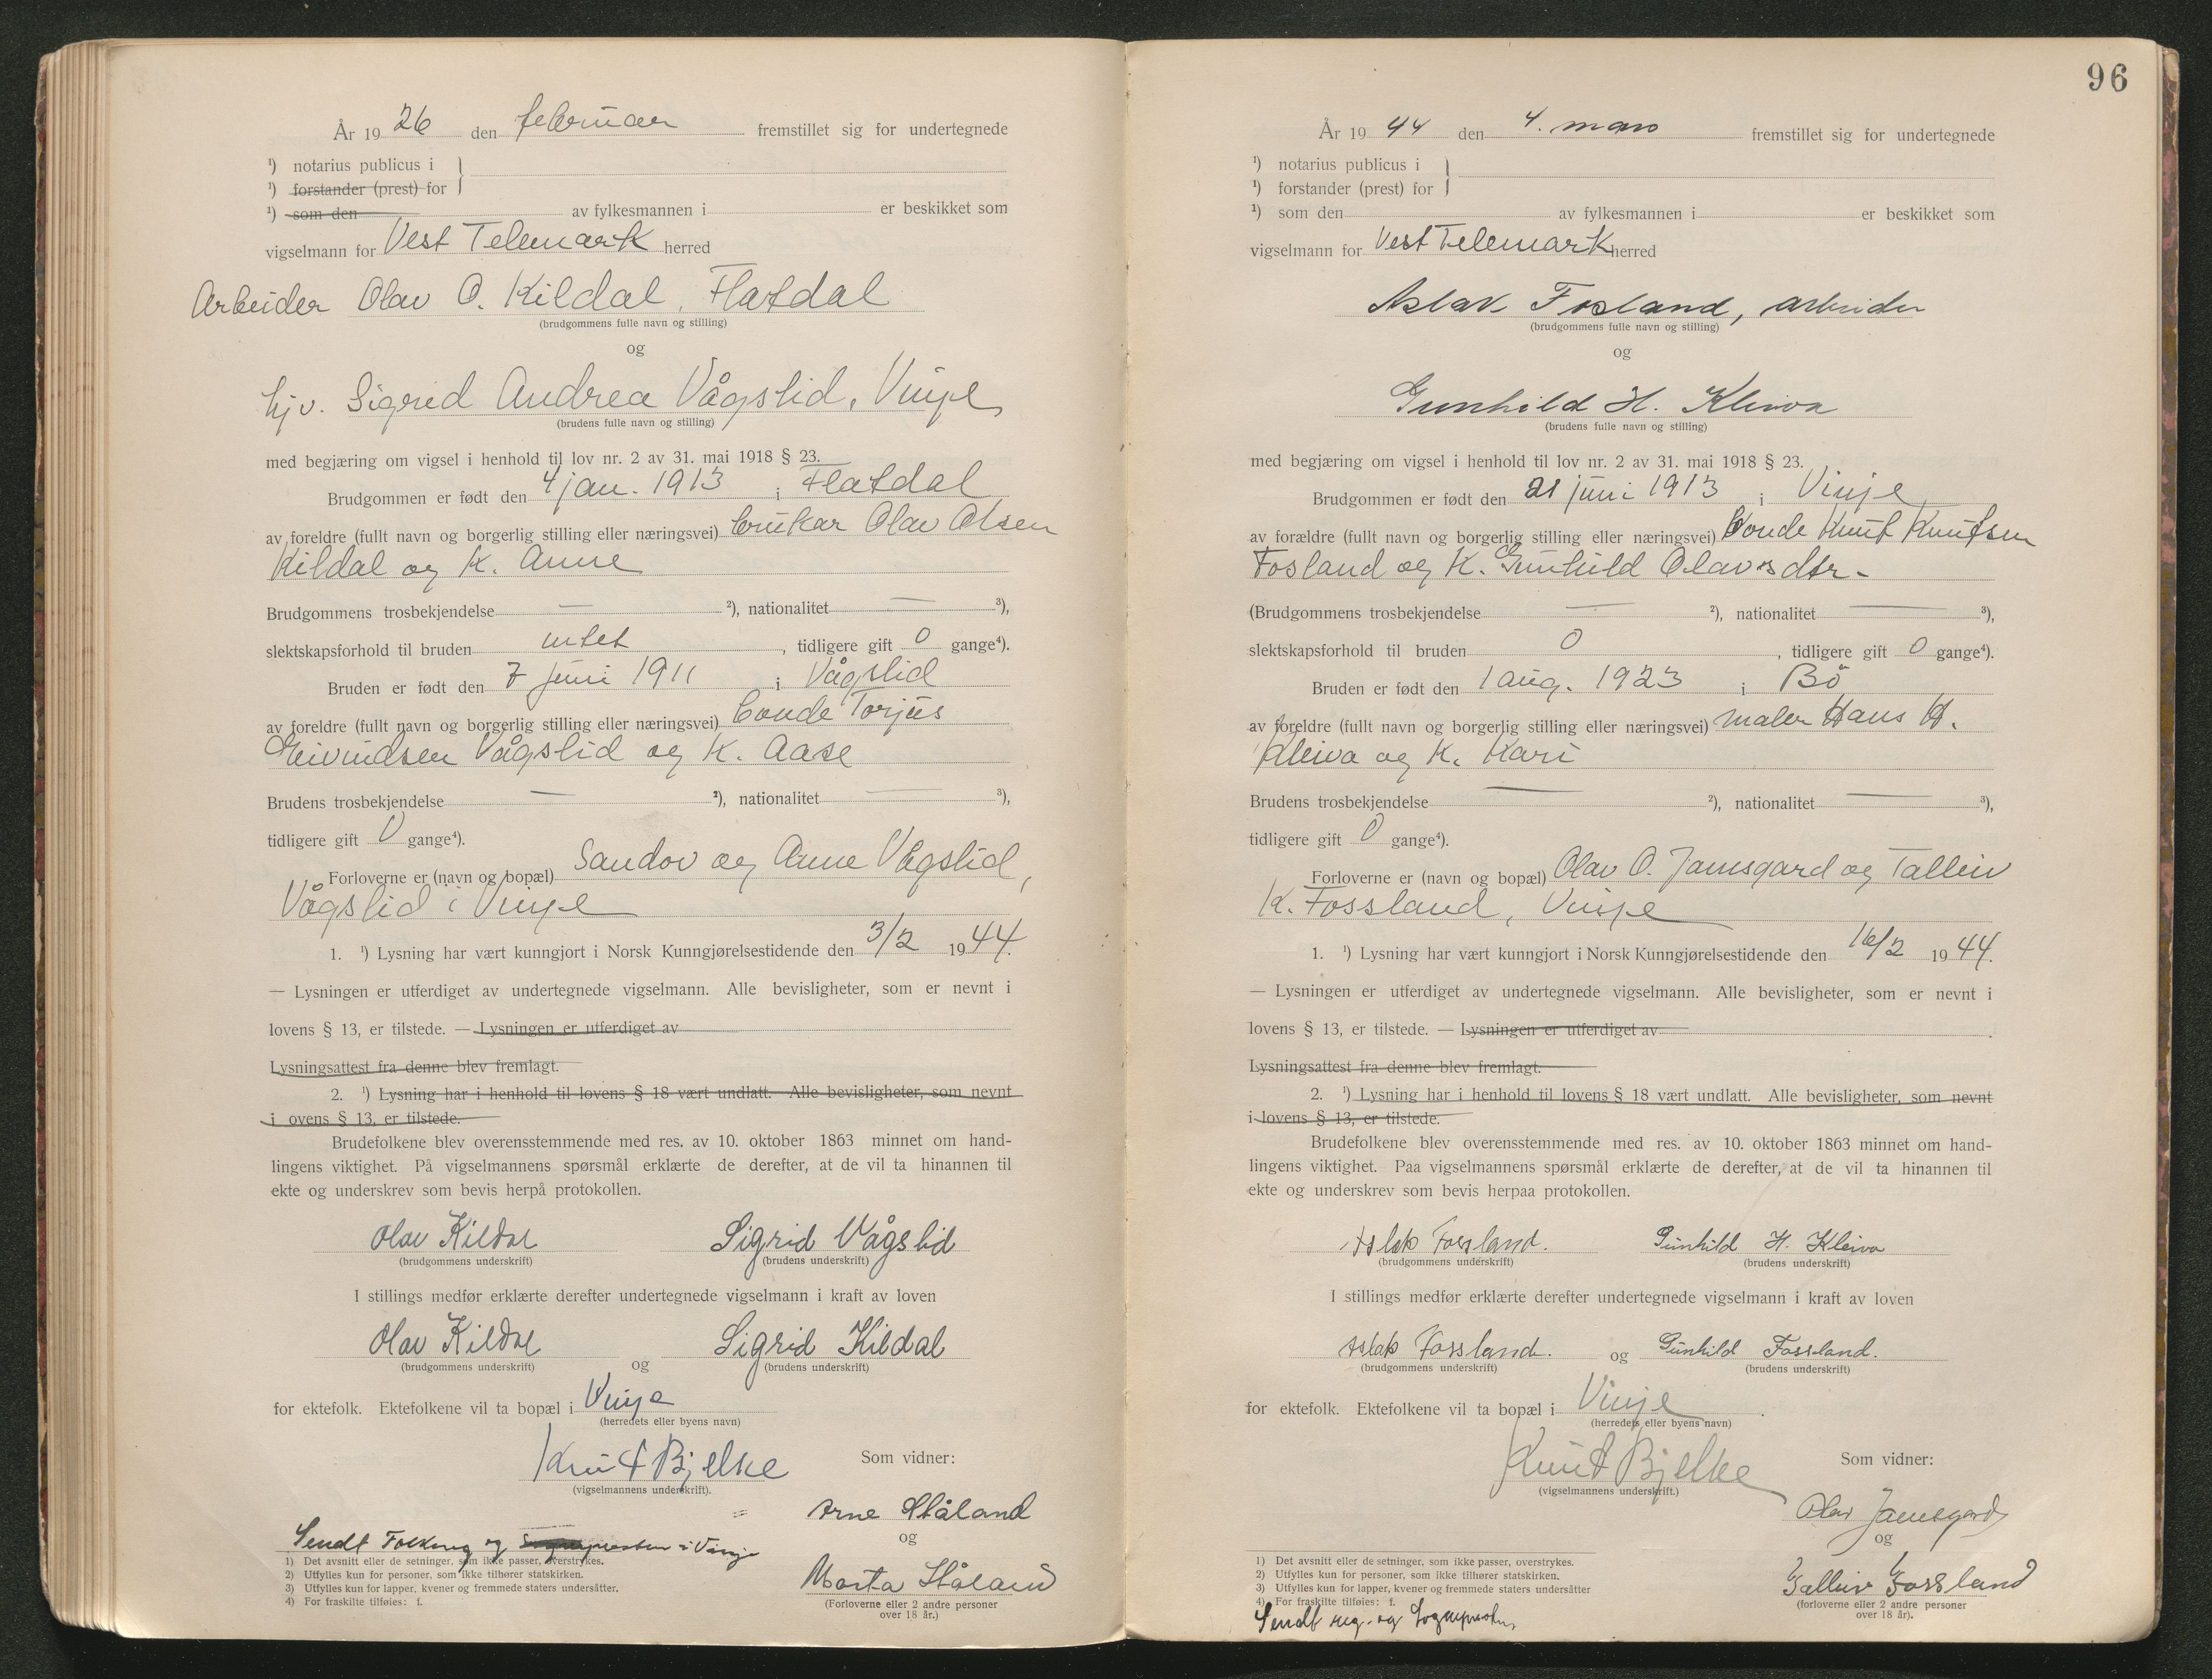 År 19 26 den februar fremstillet sig for undertegnede
¹) notarius publicus i
¹) forstander (prest) for
¹) som den av fylkesmannen i er beskikket som
vigselmann for Vest Telemark herred
Arbeider Olav O. Kildal, Flatdal
(brudgommens fulle navn og stilling)
og
hjv. Sigrid Andrea Vågslid, Vinje
(brudens fulle navn og stilling)
med begjæring om vigsel i henhold til lov nr. 2 av 31. mai 1918 § 23.
Brudgommen er født den 4 jan. 1913 i Flatdal
av foreldre (fullt navn og borgerlig stilling eller næringsvei) brukar Olav Olsen
Kildal og K. Anne
Brudgommens trosbekjendelse — ²), nationalitet — ³),
slektskapsforhold til bruden intet, tidligere gift 0 gange⁴).
Bruden er født den 7 juni 1911 i Vågslid
av foreldre (fullt navn og borgerlig stilling eller næringsvei) bonde Torjus
Eivindsen Vågslid og K. Aase
Brudens trosbekjendelse — ²), nationalitet — ³),
tidligere gift 0 gange⁴).
Forloverne er (navn og bopæl) Sandov og Anne Vågslid,
Vågslid i Vinje
1. ¹) Lysning har vært kunngjort i Norsk Kunngjørelsestidende den 3/2 1944.
— Lysningen er utferdiget av undertegnede vigselmann. Alle bevisligheter, som er nevnt i
lovens § 13, er tilstede. — Lysningen er utferdiget av
Lysningsattest fra denne blev fremlagt.
2. ¹) Lysning har i henhold til lovens § 18 vært undlatt. Alle bevisligheter, som nevnt
i ovens § 13, er tilstede.
Brudefolkene blev overensstemmende med res. av 10. oktober 1863 minnet om hand-
lingens viktighet. På vigselmannens spørsmål erklærte de derefter, at de vil ta hinannen til
ekte og underskrev som bevis herpå protokollen.
Olav Kildal Sigrid Vågslid
(brudgommens underskrift) (brudens underskrift)
I stillings medfør erklærte derefter undertegnede vigselmann i kraft av loven
Olav Kildal og Sigrid Kildal
(brudgommens underskrift) (brudens underskrift)
for ektefolk. Ektefolkene vil ta bopæl i Vinje
(herredets eller byens navn)
Knut Bjelke Som vidner:
(vigselmannens underskrift).
Arne Håland
og
Sendt Folkereg og Sognepresten i Vinje
Marta Håland
(Forloverne eller 2 andre personer
over 18 år.)
1) Det avsnitt eller de setninger, som ikke passer, overstrykes.
2) Utfylles kun for personer, som ikke tilhører statskirken.
3) Utfylles kun for lapper, kvener og fremmede staters undersåtter.
4) For fraskilte tilføies: f.
96
År 19 44 den 4. mars fremstillet sig for undertegnede
¹) notarius publicus i
¹) forstander (prest) for
¹) som den av fylkesmannen i er beskikket som
vigselmann for Vest Telemark herred
Aslak Fosland, arbeider
(brudgommens fulle navn og stilling)
og
Gunhild H. Kleiva
(brudens fulle navn og stilling)
med begjæring om vigsel i henhold til lov nr. 2 av 31. mai 1918 § 23.
Brudgommen er født den 21 juni 1913 i Vinje
av forældre (fullt navn og borgerlig stilling eller næringsvei) bonde Knut Knutsen
Fosland og K. Gunhild Olavsdtr.
(Brudgommens trosbekjendelse — ²), nationalitet — ³),
slektskapsforhold til bruden 0, tidligere gift 0 gange⁴).
Bruden er født den 1 aug. 1923 i Bö
av foreldre (fullt navn og borgerlig stilling eller næringsvei) maler Hans H.
Kleiva og K. Kari
Brudens trosbekjendelse — ²), nationalitet — ³),
tidligere gift 0 gange⁴).
Forloverne er (navn og bopæl) Olav O. Jamsgard og Talleiv
K. Fossland, Vinje
1. ¹) Lysning har vært kunngjort i Norsk Kunngjørelsestidende den 16/2 1944.
— Lysningen er utferdiget av undertegnede vigselmann. Alle bevisligheter, som er nevnt i
lovens § 13, er tilstede. — Lysningen er utferdiget av
Lysningsattest fra denne blev fremlagt.
2. ¹) Lysning har i henhold til lovens § 18 vært undlatt. Alle bevisligheter, som nevnt
i lovens § 13, er tilstede.
Brudefolkene blev overensstemmende med res. av 10. oktober 1863 minnet om hand-
lingens viktighet. Paa vigselmannens spørsmål erklærte de derefter, at de vil ta hinannen til
ekte og underskrev som bevis herpaa protokollen.
Aslak Fossland. Gunhild H. Kleiva
(brudgommens underskrift) (brudens underskrift)
I stillings medfør erklærte derefter undertegnede vigselmann i kraft av loven
Aslak Fossland. og Gunhild Fossland.
(brudgommens underskrift) (brudens underskrift)
for ektefolk. Ektefolkene vil ta bopæl i Vinje.
(herredets eller byens navn)
Knut Bjelke Som vidner:
(vigselmannens underskrift.)
Olav Jamsgard
og
Talleiv Fossland
(forloverne eller 2 andre personer
over 18 år).
1) Det avsnitt eller de setninger, som ikke passer, overstrykes.
2) Utfylles kun for personer, som ikke tilhører statskirken.
3) Utfylles kun for lapper, kvener og fremmede staters undersåtter
4) For fraskilte tilføies: f.
Sendt reg. og Sognepresten